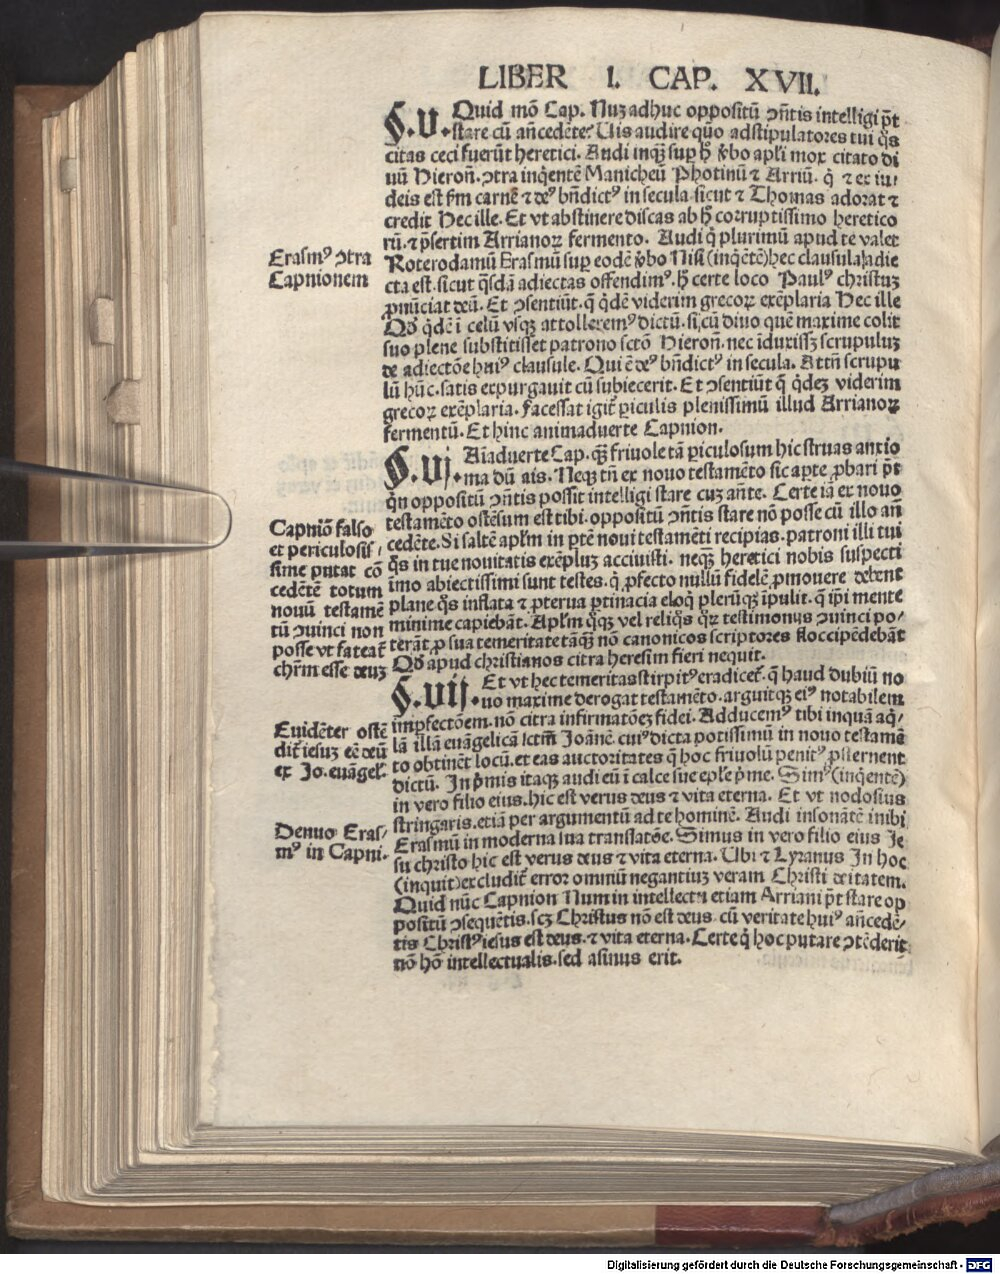 LIBER I. CAP. XVII.
§.v. Quid mõ Cap. Nuz adhuc oppositũ ↄñtis intelligi p̃t
stare cũ añcedẽte? Uis audire quo adstipulatores tui q̃s
citas ceci fuerũt heretici. Audi inqꝫ sup h̃ v̓bo apl̃i mox citato di
uũ Hieroñ. ↄtra inq̃entẽ Manicheũ Photinũ ⁊ Arriũ. q̃ ⁊ ex iu/
deis est s̃m carnẽ ⁊ deꝰ bñdictꝰ in secula sicut ⁊ Thomas adorat ⁊
credit Hec ille. Et vt abstinere discas ab h̃ corruptissimo heretico
rũ. ⁊ p̃sertim Arrianoꝝ fermento. Audi q̃ plurimũ apud te valet
Roterodamũ Erasmũ sup eodẽ v̓bo Nisi (inq̃ẽtẽ) hec clausula adie
cta est. sicut q̃sdã adiectas offendimꝰ. h̃ certe loco Paulꝰ christuꝫ
ꝓnũciat deũ. Et ↄsentiũt. q̃ q̃dẽ viderim grecoꝝ exẽplaria Hec ille
Qđ q̃dẽ ĩ celũ vsqꝫ attolleremꝰ dictũ. si, cũ diuo quẽ maxime colit
suo plene substitisset patrono sctõ Hieroñ. nec ĩduxissꝫ scrupuluꝫ
de adiectõe huiꝰ clausule. Qui ẽ deꝰ bñdictꝰ in secula. Attñ scrupu
lũ hũc. satis expurgauit cũ subiecerit. Et ↄsentiũt q̃ q̃deꝫ viderim
grecoꝝ exẽplaria. Facessat igit̃ ꝑiculis plenissimũ illud Arrianoꝝ
fermentũ. Et hinc animaduerte Capnion.
§.vj. Aĩaduerte Cap. qꝫ̃ friuole tã ꝑiculosum hic struas anxio
ma dũ ais. Neqꝫ tñ ex nouo testamẽto sic aꝑte ꝓbari p̃t
q̃n oppositũ ↄñtis possit intelligi stare cuꝫ añte. Certe iã ex nouo
testamẽto ostẽsum est tibi. oppositũ ↄñtis stare nõ posse cũ illo añ
cedẽte. Si saltẽ apl̃m in ꝑtẽ noui testamẽti recipias. patroni illi tui
q̃s in tue nouitatis exẽpluꝫ acciuisti. neqꝫ̃ heretici nobis suspecti
ĩmo abiectissimi sunt testes. q̃ ꝓfecto nullũ fidelẽ ꝓmouere debent
plane q̃s inflata ⁊ ꝓterua ꝑtinacia eloq̃ plerũqꝫ ĩpulit. q̃ ip̃i mente
minime capiebãt. Apl̃m q̃qꝫ vel reliq̃s q̃ꝝ testimonijs ↄuinci po/
terãt. ꝓ sua temeritate tãqꝫ̃ nõ canonicos scriptores floccipẽdebãt
Qđ apud christianos citra heresim fieri nequit.
§.vij. Et vt hec temeritas stirpitꝰ eradicet̃. q̃ haud dubiũ no
uo maxime derogat testamẽto. arguitqꝫ eiꝰ notabilem
imꝑfectõem. nõ citra infirmatõeꝫ fidei. Adducemꝰ tibi inquã aq̃/
lã illã euãgelicã sctm̃ Joãnẽ. cuiꝰ dicta potissimũ in nouo testamẽ
to obtinẽt locũ. et eas auctoritates q̃ hoc friuolũ penitꝰ ꝓsternent
dictũ. In p̃mis itaqꝫ audi eũ ĩ calce sue epl̃e p̃me. Simꝰ (inq̃entẽ)
in vero filio eius. hic est verus deus ⁊ vita eterna. Et vt nodosius
stringaris. etiã per argumentũ ad te hominẽ. Audi insonãtẽ inibi
Erasmũ in moderna sua translatõe. Simus in vero filio eius Je
su christo hic est verus deus ⁊ vita eterna. Ubi ⁊ Lyranus In hoc
(inquit) excludit̃ error omniũ negantiuꝫ veram Christi deitatem.
Quid nũc Capnion Num in intellectu etiam Arriani p̃t stare op
positũ ↄsequẽtis. scꝫ Christus nõ est deus. cũ veritate huiꝰ añcedẽ/
tis Christꝰ iesus est deus. ⁊ vita eterna. Certe q̃ hoc putare ↄtẽderit
nõ hõ intellectualis. sed asinus erit.
Erasmꝰ ↄtra
Capnionem
Capniõ falso
et periculosis/
sime putat cõ
cedẽtẽ totum
nouũ testamẽ
tũ ↄuinci non
posse vt fateat̃
chr̃m esse deuꝫ
Euidẽter ostẽ
dit̃ iesuꝫ eẽ deũ
ex Jo. euãgel̃.
Denuo Eras/
mꝰ in Capni.
Digitalisierung gefördert durch die Deutsche Forschungsgemeinschaft - DFG